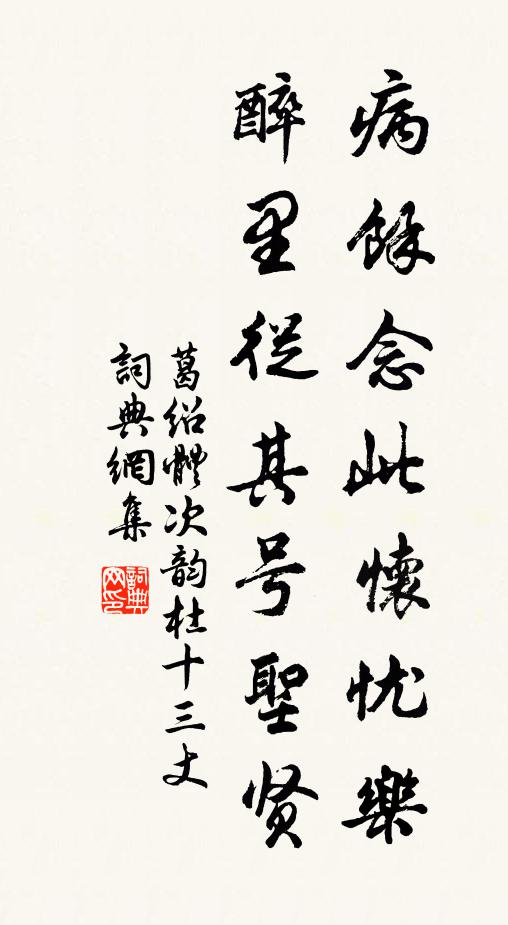 病餘念此懷忧樂
醉里從其号聖贤
葛绍體次韵杜十三丈
詞典網集
詞典网印